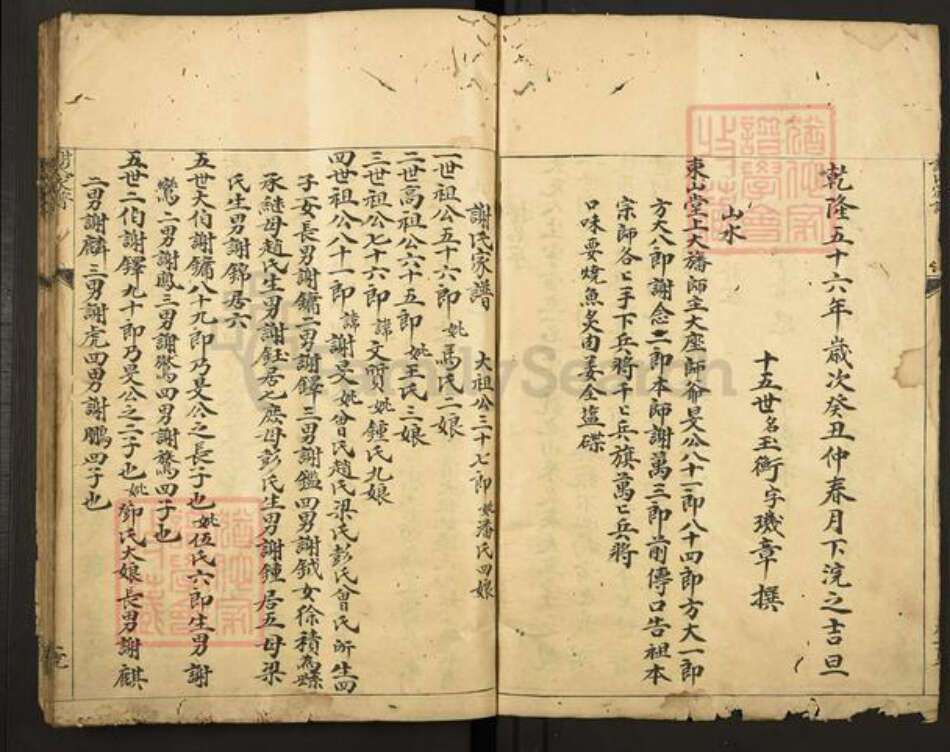 乾隆五十六年歲次癸丑仲春月下浣之吉旦
十五世名玉衡字璣章撰
山水
東山堂上大旛師主大座師爺旻公八十一郎八十四郎方大一郎
方大八郎謝念二郎本師謝萬三郎前傳口告祖本
宗師各匕手下兵將千匕兵旗萬匕兵將
口味要燒魚炙肉姜全塩碟
謝氏家譜 大祖公三十七郎妣潘氏四娘
一世祖公五十六郎妣馬氏二娘
二世高祖公六十五郎妣王氏三娘
三世祖公七十六郎諱文質妣鍾氏九娘
四世祖公八十一郎諱謝旻妣曾氏趙氏梁氏彭氏曾氏所生四
子一女長男謝鏞二男謝鐸三男謝鑑四男謝鉞女徐積為
承継母趙氏生男謝鈺居七庶母彭氏生男謝鍾居五母梁
氏生男謝錦居六
五世大伯謝鏞八十九郎乃旻公之長子也妣伍氏六郎生男謝
鸞二男謝鳳三男謝鶯四男謝鷟四子也
五世二伯謝鐸九十郎乃旻公之二子也妣鄧氏大娘長男謝麒
二男謝麟三男謝虎四男謝鵬四子也
FamilySearch